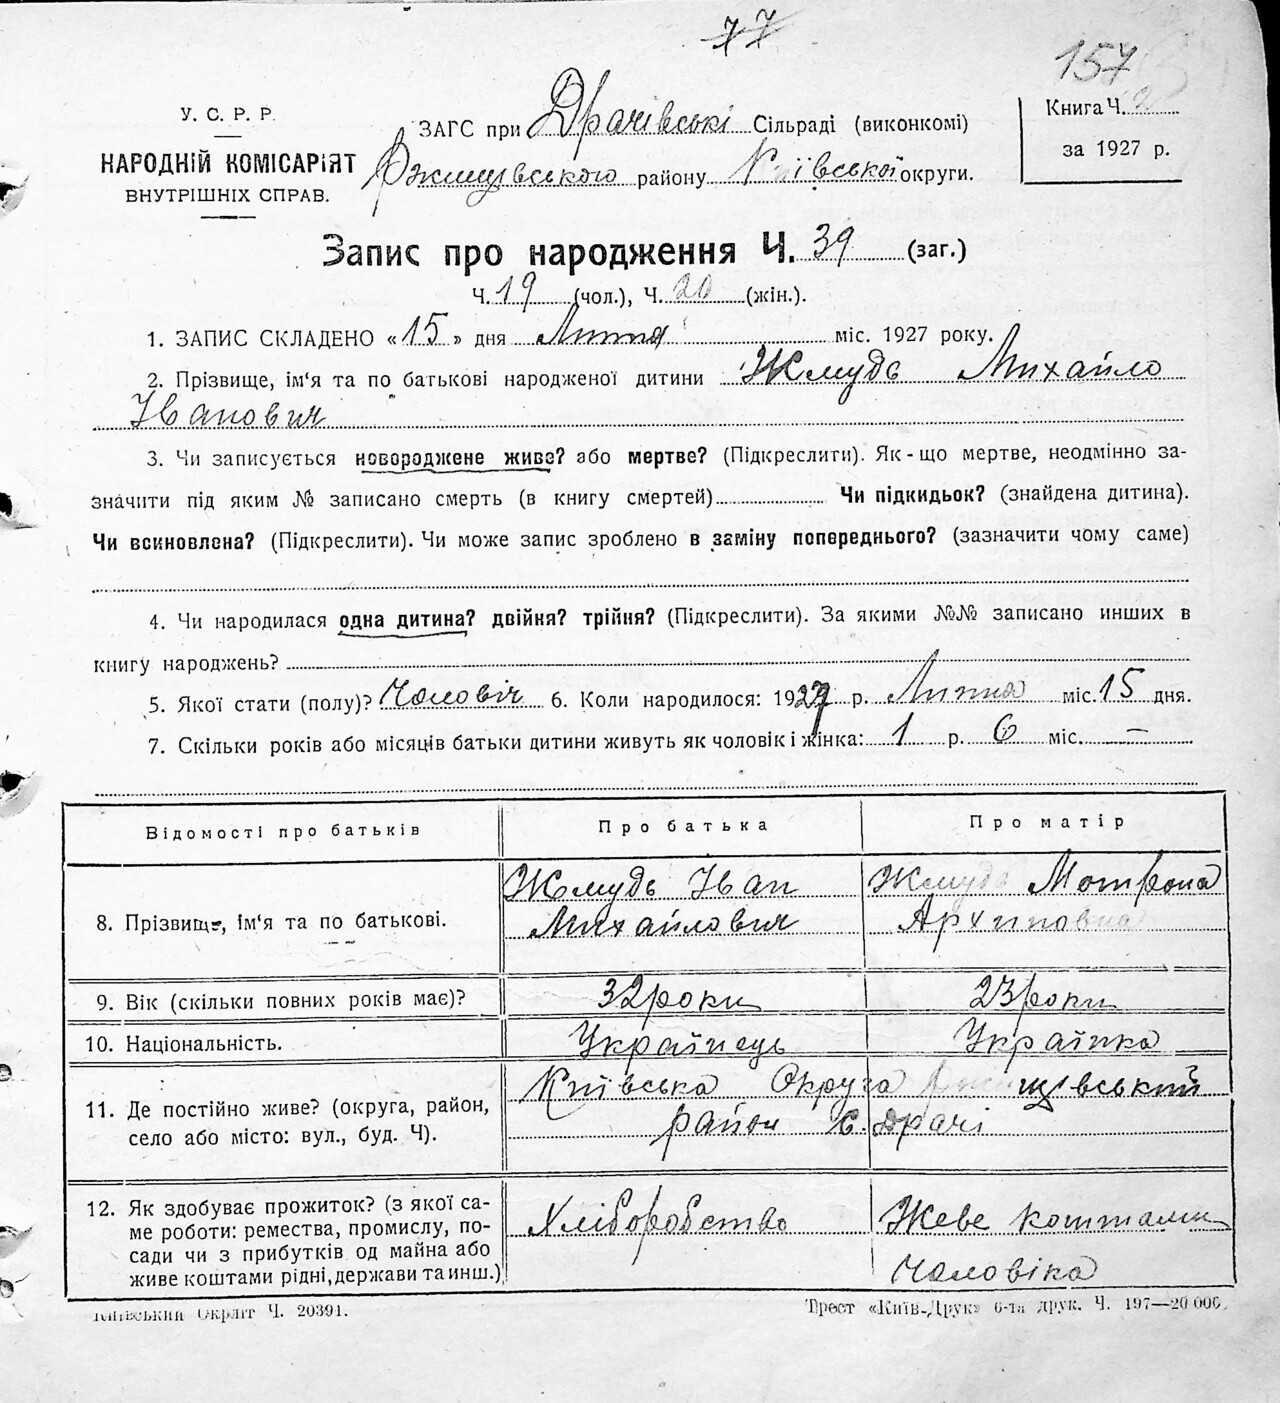 77
157
У. С. Р. Р.
НАРОДНІЙ КОМІСАРІЯТ
ВНУТРІШНІХ СПРАВ.
ЗАГС при Драчівські Сільраді (виконкомі)
Ржищівського району Київської округи.
Книга Ч. 2
за 1927 р.
Запис про народження Ч. 39 (заг.)
Ч. 19 (чол.), Ч. 20 (жін.).
1. ЗАПИС СКЛАДЕНО «15» дня Липня міс. 1927 року.
2. Прізвище, ім‘я та по батькові народженої дитини Жмудь Михайло
Іванович
3. Чи записується новороджене живе? або мертве? (Підкреслити). Як-що мертве, неодмінно за-
значити під яким № записано смерть (в книгу смертей) Чи підкидьок? (знайдена дитина).
Чи всиновлена? (Підкреслити). Чи може запис зроблено в заміну попереднього? (зазначити чому саме)
4. Чи народилася одна дитина? двійня? трійня? (Підкреслити). За якими №№ записано инших в
книгу народжень?
5. Якої стати (полу)? Чоловіч 6. Коли народилося: 1927 р. Липня міс. 15 дня.
7. Скільки років або місяців батьки дитини живуть як чоловік і жінка: 1 р. 6 міс. —
Відомості про батьків Про батька Про матір
8. Прізвище, ім‘я та по батькові. Жмудь Іван Михайлович Жмудь Мотрона Архиповна
9. Вік (скільки повних років має)? 32 роки 23 роки
10. Національність. Українець Українка
11. Де постійно живе? (округа, район, Київська Округа Ржищівський
село або місто: вул., буд. Ч). район С. Драчі
12. Як здобуває прожиток? (з якої са-
ме роботи: ремества, промислу, по- Хліборобство Жеве коштами
сади чи з прибутків од майна або
живе коштами рідні, держави та инш.) Чоловіка
Київський Окрліт Ч. 20391. Трест «Київ-Друк» 6-та друк. Ч. 197—20 000.